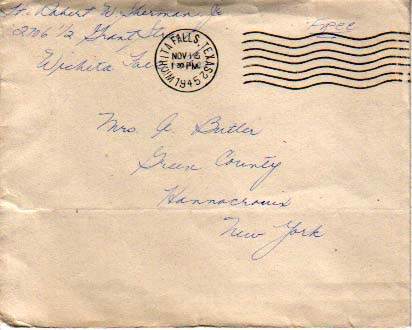 Lt. Robert W. Sherman Jr
2706 1/2 Grant St.
Wichita Fal
WICHITA FALLS, TEXAS 2
NOV 15
1 30 PM
1945
Free
Mrs. A. Butler
Green County
Hannacrouix
New York